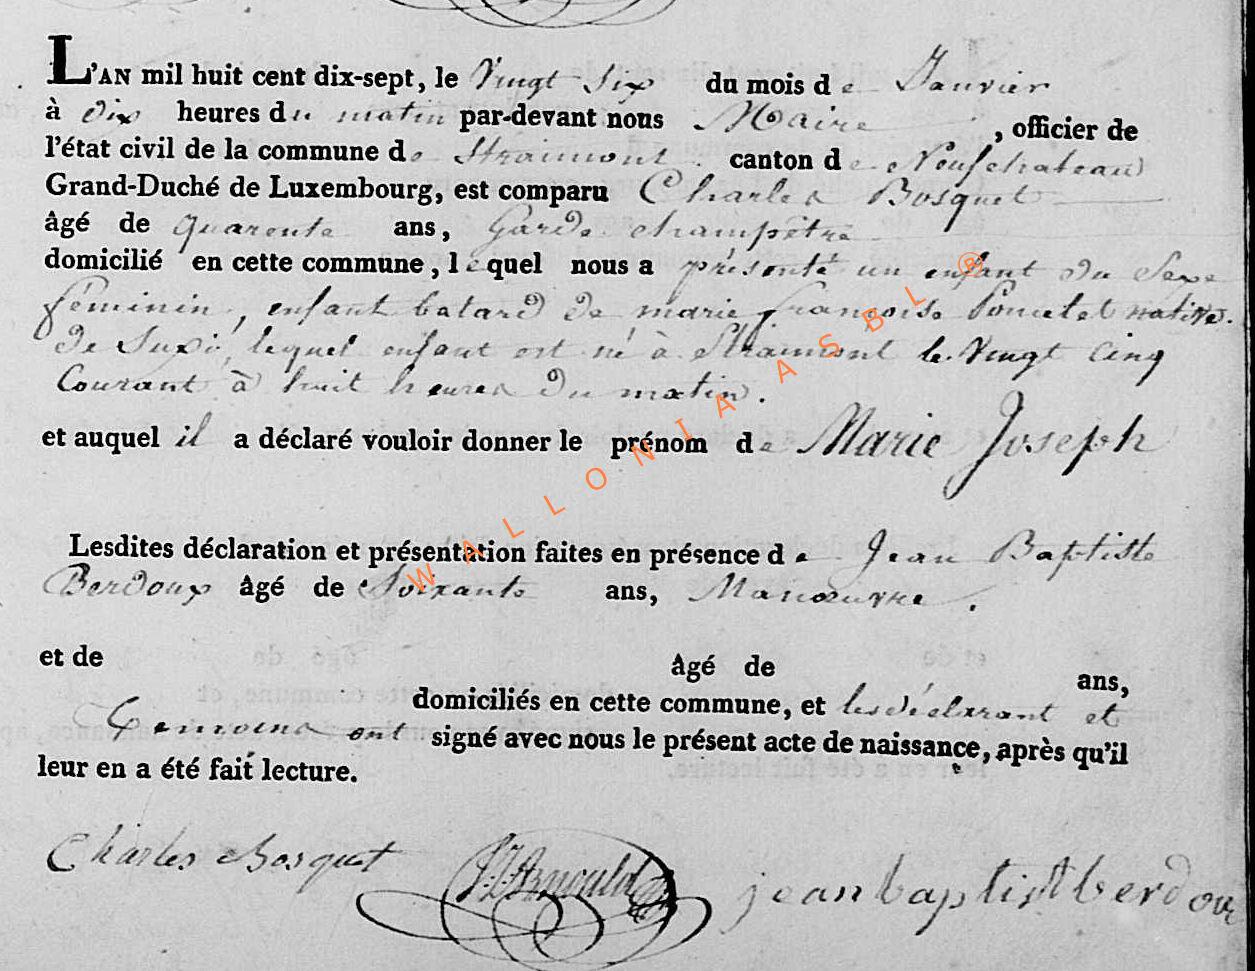 L'AN mil huit cent dix-sept, le Vingt Six du mois de Janvier
à dix heures du matin par-devant nous Maire, officier de
l'état civil de la commune de Straimont canton de Neufchateau
Grand-Duché de Luxembourg, est comparu Charles Bosquet
âgé de quarente ans, Garde champêtre
domicilié en cette commune, lequel nous a présenté un enfant du Sexe
féminin, enfant batard de marie françoise Poncelet native.
de Suxi, lequel enfant est né à Straimont le Vingt Cinq
Courant à huit heures du matin.
et auquel il a déclaré vouloir donner le prénom de Marie Joseph
Lesdites déclaration et présentation faites en présence de Jean Baptiste
Berdoux âgé de Soixante ans, Manœuvre.
et de âgé de ans,
domiciliés en cette commune, et les déclarant et
temoins ont signé avec nous le présent acte de naissance, après qu'il
leur en a été fait lecture.
Charles Bosquet J.J. Arnould jean baptist berdou
WALLONIA ASBL ®